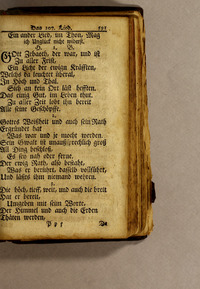 Das 107. Lied. 191
Ein ander Lied, im Thon, Mag
ich Unglück nicht widerst.
H. 1. B.
GOtt Zebaoth, der war, und ist
Zu aller Frist,
Ein Liecht der ewign Kräfften,
Welchs da leuchtet überal,
In Höch und Thal,
Sich an kein Ort läst hefften,
Das einig Gut, im Leben thut,
Zu aller Zeit lobt ihn bereit
Alle seine Geschöpffe.
2.
Gottes Weißheit und auch sein Rath
Ergründet hat
Was war und je mocht werden.
Sein Gwalt ist unaussprechlich groß
All Ding beschloß,
Es sey nah oder ferne,
Der ewig Rath, also bestaht,
Was er berührt, dasselb vollführt,
Und lästs ihm niemand wehren.
3.
Die höch, tieff, weit, und auch die breit
Hat er bereit,
Umgeben mit seim Worte,
Der Himmel und auch die Erden
Thäten werden,